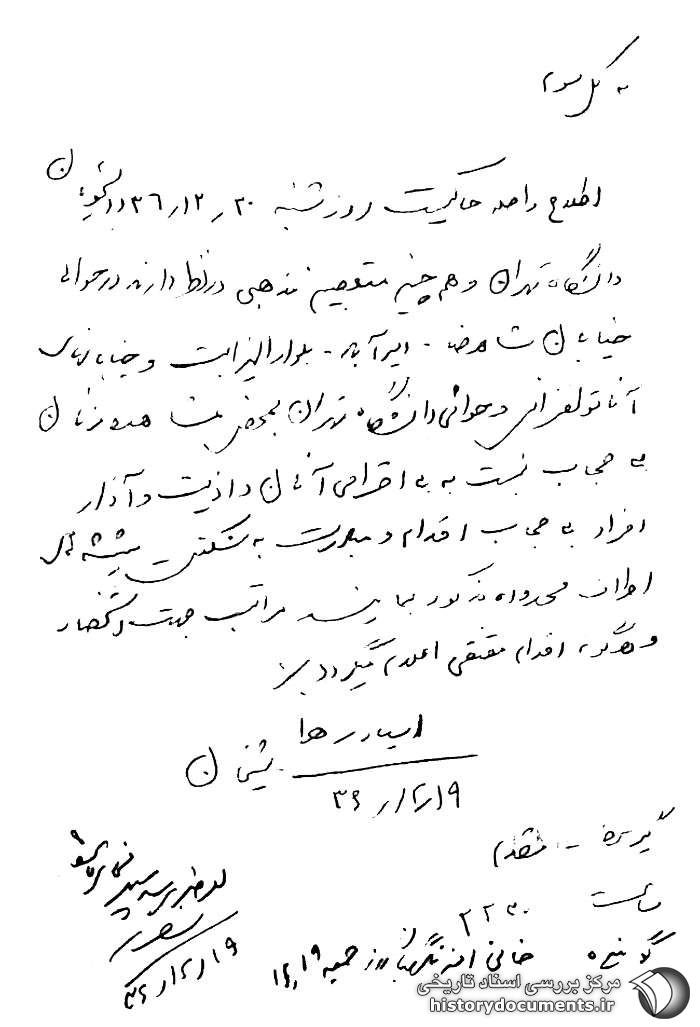 به کل سوم
اطلاع واصله حاکیست روز شنبه ۲۰ر۱۲ر۳۶ دانشجویان
دانشگاه تهران و هم چنین متعصبین مذهبی در نظر دارند در حوالی
خیابان شاهرضا - امیرآباد - بلوار الیزابت و خیابانهای
آناتول فرانس و حوالی دانشگاه تهران بمحض مشاهده زنان
بی حجاب نسبت به بی احترامی آنان و اذیت و آزار
افراد بی حجاب اقدام و مبادرت به شکستن شیشه های
اطراف محدوده مذکور نمایند مراتب جهت استحضار
و هرگونه اقدام مقتضی اعلام میگردد
۱۹ر۱۲ر۳۶
گیرنده - مقدم
ساعت ۲۲۳۰
گوینده خانم افسر نگهبان روز جمعه ۱۹ر۱۲
۱۹ر۱۲ر۳۶
مرکز بررسی اسناد تاریخی
historydocuments.ir